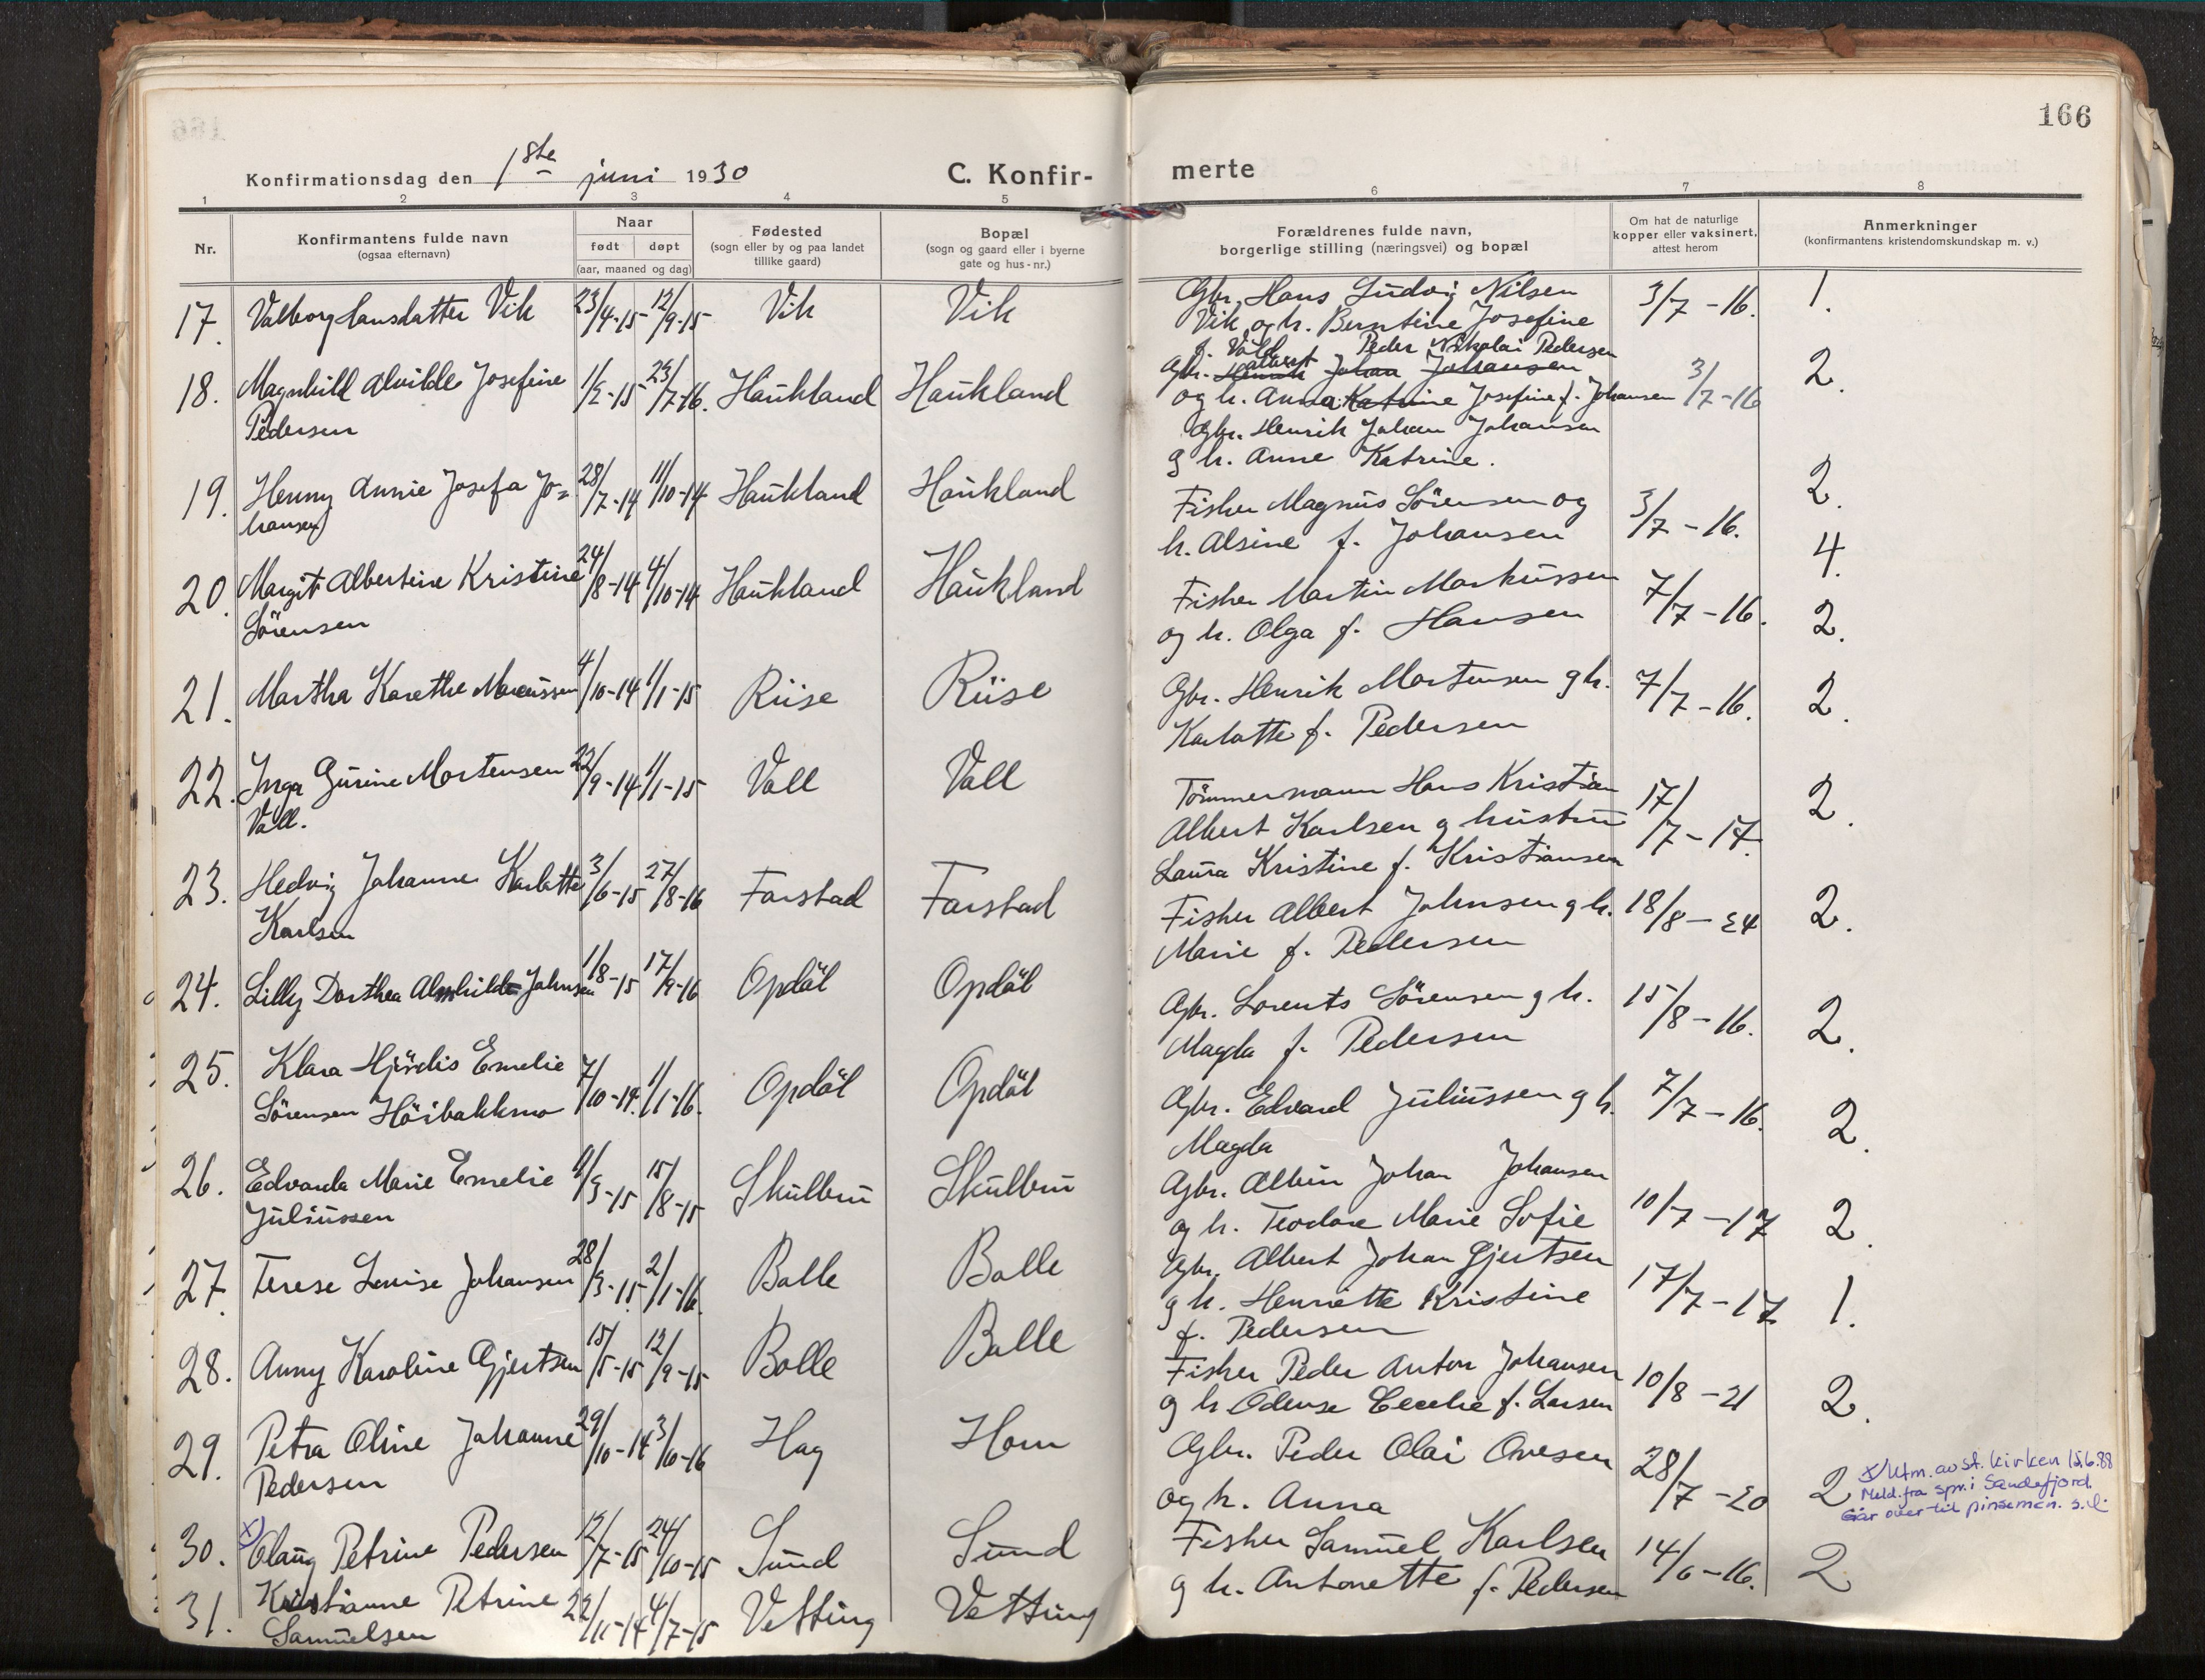 166
Konfirmationsdag den 1ste juni 1930
C. Konfirmerte
1 2 3 4 5 6 7 8
Nr.
Konfirmantens fulde navn
(ogsaa efternavn)
Naar
født døpt
(aar, maaned og dag)
Fødested
(sogn eller by og paa landet
tillike gaard)
Bopæl
(sogn og gaard eller i byerne
gate og hus-nr.)
Forældrenes fulde navn,
borgerlige stilling (næringsvei) og bopæl
Om hat de naturlige
kopper eller vaksinert,
attest herom
Anmerkninger
(konfirmantens kristendomskundskap m. v.)
17. Valborg Hansdatter Vik 23/4-15 12/9-15 Vik Vik
18. Magnhild Alvilde Josefine 1/2-15 23/7-16. Haukland Haukland
Pedersen
19. Henny Annie Josefa Jo= 28/7-14 11/10-14 Haukland Haukland
hansen
20. Margit Albertine Kristine 24/8-14 4/10-14 Haukland Haukland
Sörensen
21. Martha Karethe Marcussen 4/10-14 1/1-15 Riise Riise
22. Inga Gurine Mortensen 22/9-14 1/1-15 Vall Vall
Vall.
23. Hedvig Johanne Karlotte 3/6-15 27/8-16 Farstad Farstad
Karlsen
24. Lilly Dorthea Johnsen 1/8-15 17/9-16 Opdöl Opdöl
25. Klara Hjördis Emelie 7/10-14. 1/1-16. Opdöl Opdöl
Sörensen Höibakkmo
26. Edvarda Marie Emelie 15/8-15 Skulbru Skulbru
Juliussen
27. Terese Lovise Johansen 28/9-15. 2/1-16. Bolle Bolle
28. Anny Karoline Gjertsen 15/5-15 12/9-15 Bolle Bolle
29. Petra Oline Johanne 29/10-14 3/10-16 Hag Horn
Pedersen
30. x) Olaug Petrine Pedersen 12/7-15 24/10-15 Sund Sund
31. Kristianne Petrine 22/11-14 4/7-15 Vetting Vetting
Samuelsen
Gbr. Hans Ludvig Nilsen 3/7-16. 1.
Vik og h. Berntine Josefine
f. Vold Peder Nikolai Pedersen
Gbr. Henrik Johan Johansen 3/7-16 2.
og h. Anna Katrine Josefine f. Johansen
Gbr. Henrik Johan Johansen
g h. Anne Katrine. 2.
Fisker Magnus Sörensen og 3/7-16.
h. Alsine f. Johansen 4.
Fisker Martin Markussen 7/7-16.
og h. Olga f. Hansen 2.
Gbr. Henrik Mortensen g h. 7/7-16. 2.
Karlotte f. Pedersen
Tömmermann Hans Kristian 17/7-17. 2.
Albert Karlsen g hustru
Laura Kristine f. Kristiansen
Fisker Albert Johnsen g h. 18/8-24 2.
Marie f. Pedersen
Gbr. Lorents Sörensen g h. 15/8-16. 2.
Magda f. Pedersen
Gbr. Edvard Juliussen g h. 7/7-16. 2.
Magda
Gbr. Albin Johan Johansen
og h. Teodore Marie Sofie 10/7-17 2.
Gbr. Albert Johan Gjertsen
g h. Henriette Kristine 17/7-17 1.
f. Pedersen
Fisker Peder Anton Johansen 10/8-21 2.
g h Odense Cecelie f. Larsen
Gbr. Peder Olai Ovesen 28/7-20 2
og h. Anna
x) Utm. av st. kirken 15.6.88
Meld. fra spr. i Sandefjord.
Går over til pinsemen. s.d.
Fisker Samuel Karlsen 14/6-16. 2
g h. Antonette f. Pedersen